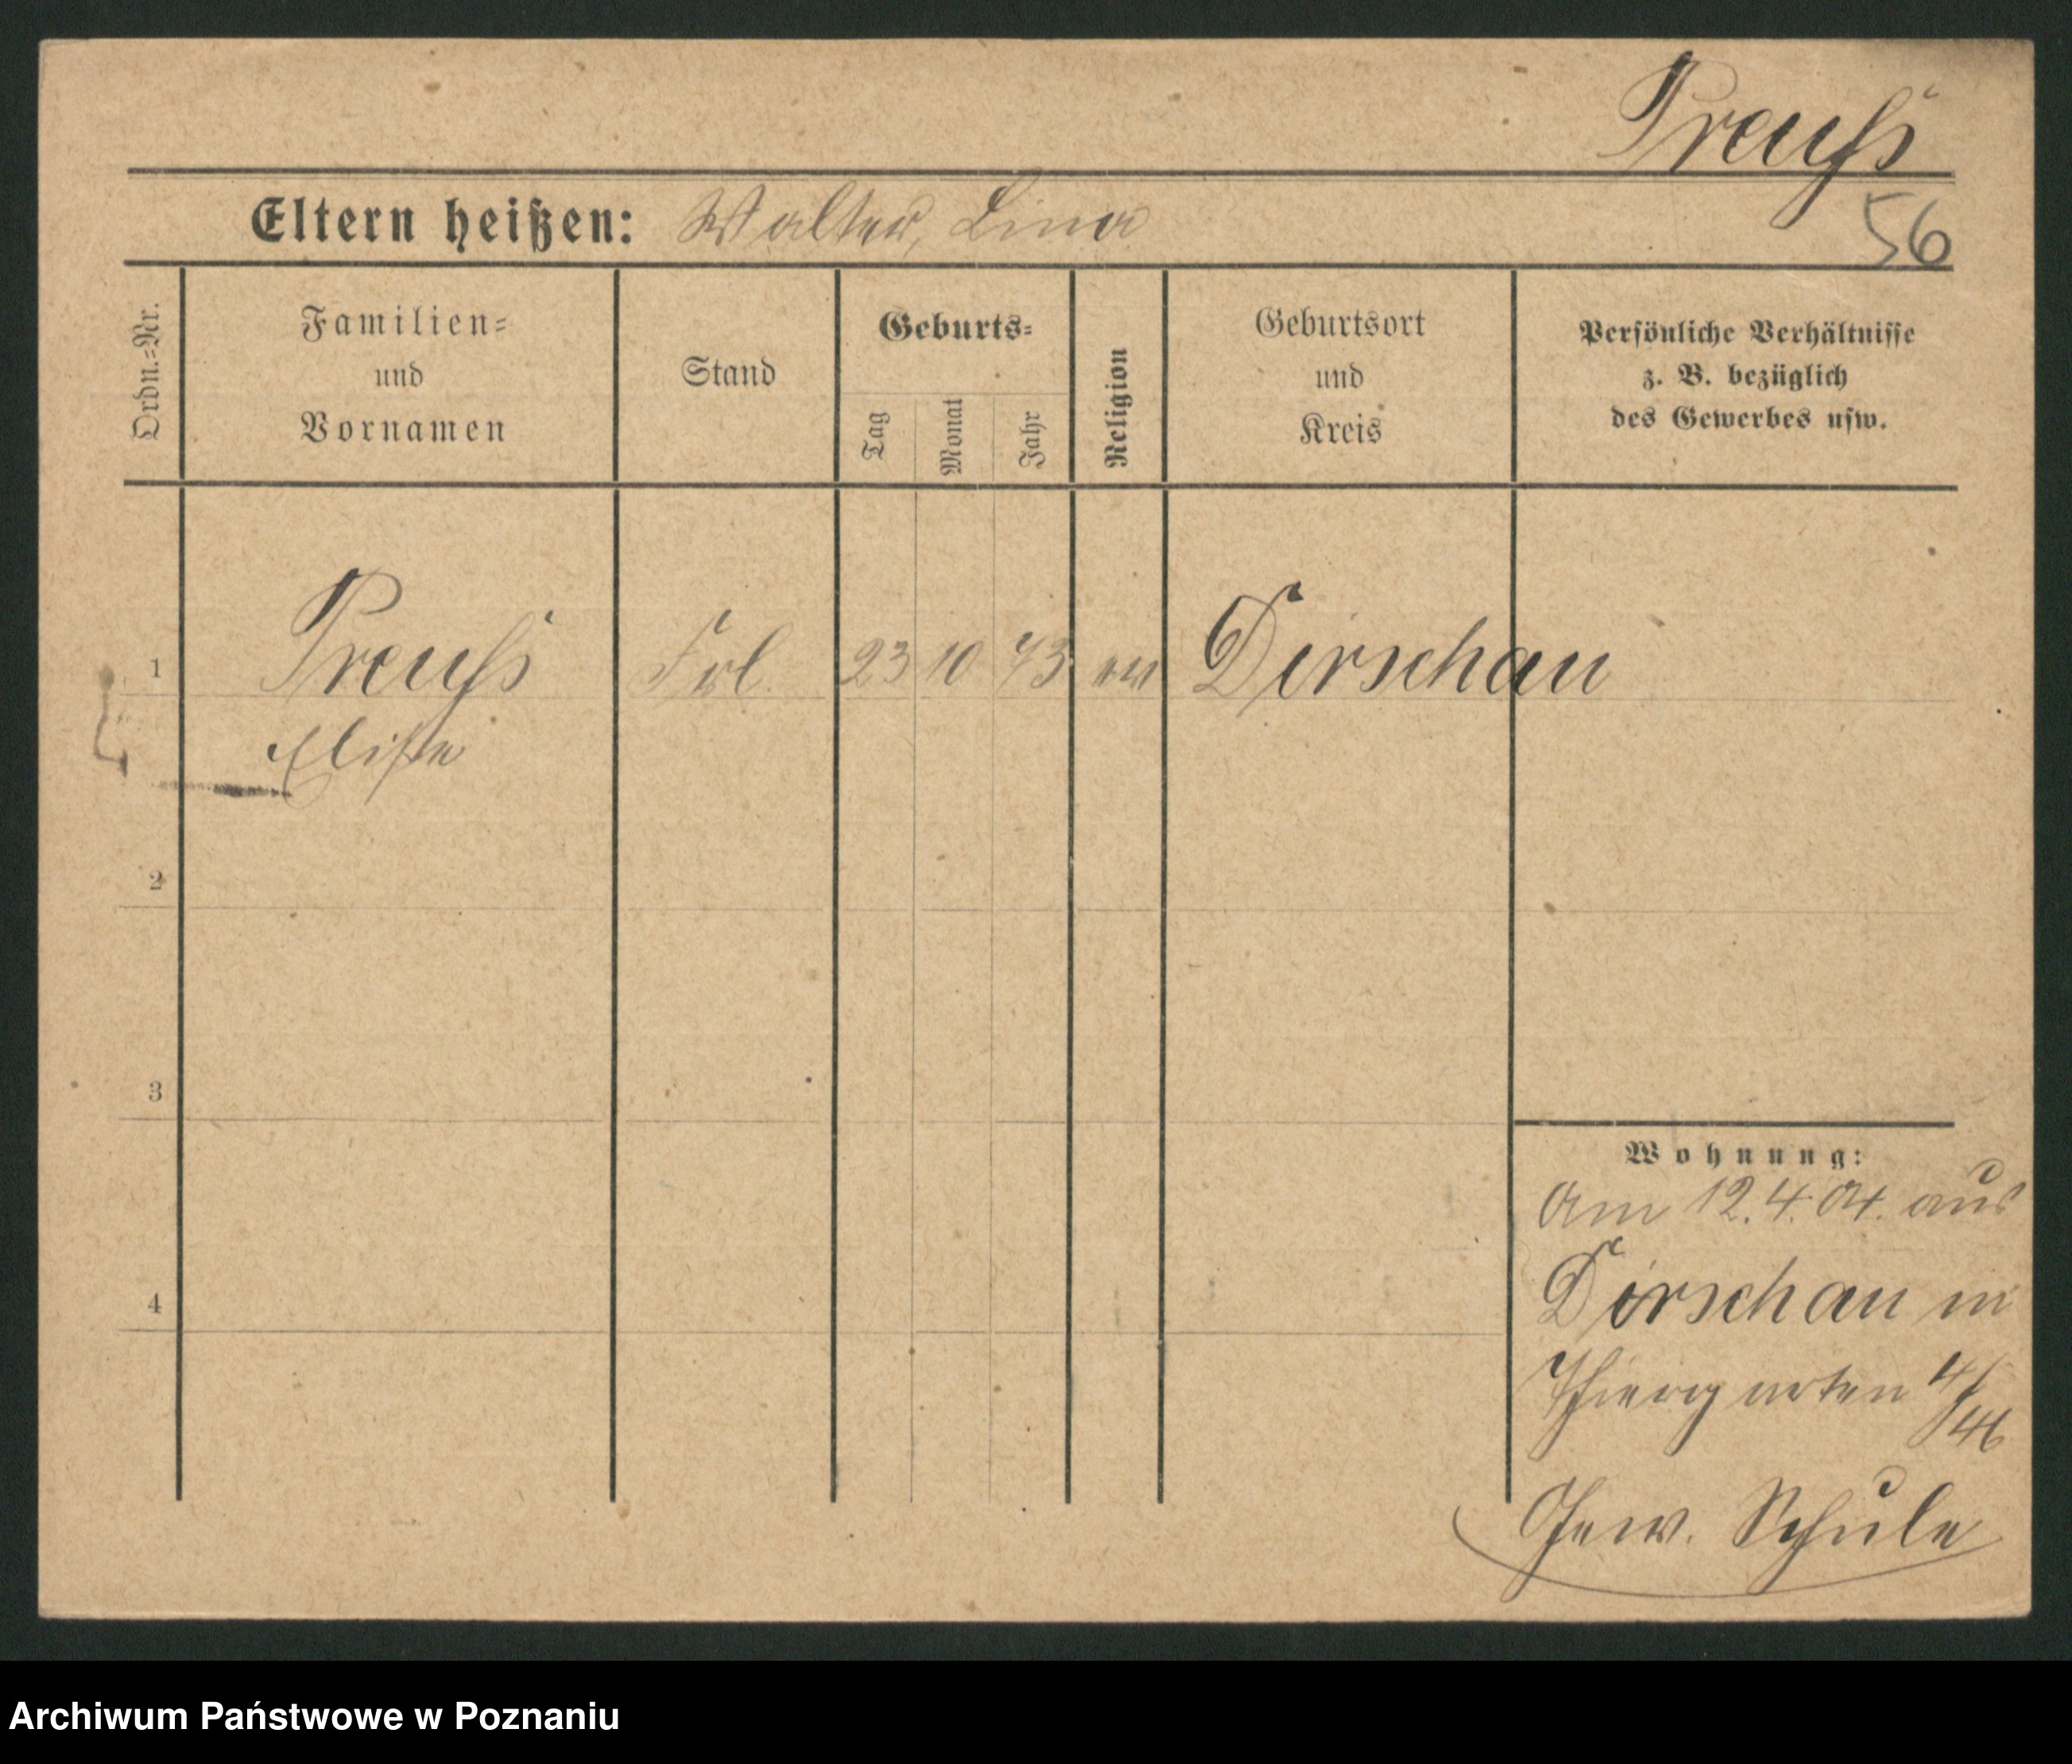 Preuß
Eltern heißen: Walter, Lina
56
Ordn.=Nr.
Familien=
und
Vornamen
Stand
Geburts=
Tag
Monat
Jahr
Religion
Geburtsort
und
Kreis
Persönliche Verhältnisse
z. B. bezüglich
des Gewerbes usw.
1 Preuß Frl. 23 10 73 ev Dirschau
Elise
2
3
4
Wohnung:
Am 12.4.04. aus
Dirschau in
Thiergarten 4/46
Gew. Schule
Archiwum Państwowe w Poznaniu